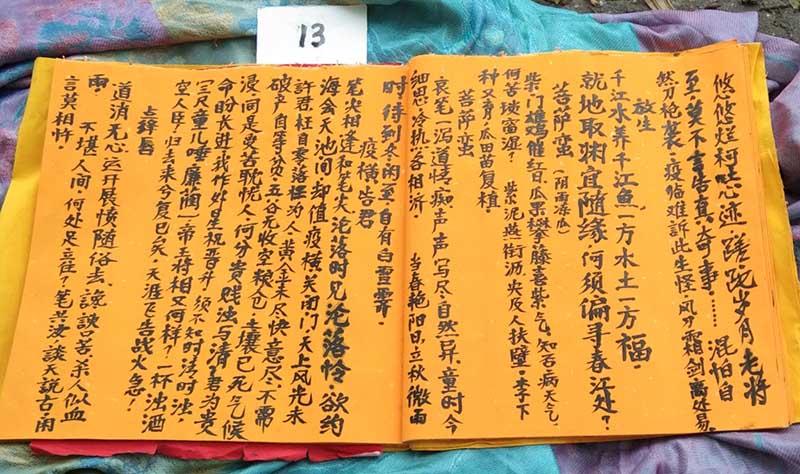 13
悠悠烂柯忘迹 蹉跎岁月老将
至莫不言告真大奇事……混怕自
然刀枪袭 疫临难訴此生怪 风分霜剑离处易
放生
千江水养千江鱼一方水土一方福
就地取渊宜随缘何须偏寻春江处？
菩萨蛮（阴雨凉瓜）
柴门雄鸡催红日 瓜果攀藤喜紫气 知否病天气
何苦淡窗湿？ 紫泥燕衔沥 尖及人扶壁 李下
种又有 瓜田苗复植。
菩萨蛮
哀笔一泻道情 痴声声写尽自然一异 童时今
细思 冷执一各相沂 当春艳阳日 立秋微雨
时 待到冬闲至 自有白雪霁。
疫横告君
笔尖相逢和笔尖 沦落时见沦落怜 欲约
海禽天池间 却值疫横关闭门 天上风光未
许君 枉自零落枉为人 黄金未尽快意尽 不需
破产自等分 五谷无收空粮仓 土壤已死气候
浸 同是受苦耽忧人 何分贵贱浊与清 君为贵
命盼长进 我作处星祝晋升 须不知时清时浊
三尺童儿唾廉闻 帝王将相又何样？一杯浊酒
空人臣？归去来兮复已矣 天涯飞告战火急？
点绛唇
道消无心 运开展愤随俗去 谈谈苦 杀人似血
雨 不堪人间 何处是立住？笔共汝 谈天説古 闲
言莫相忤